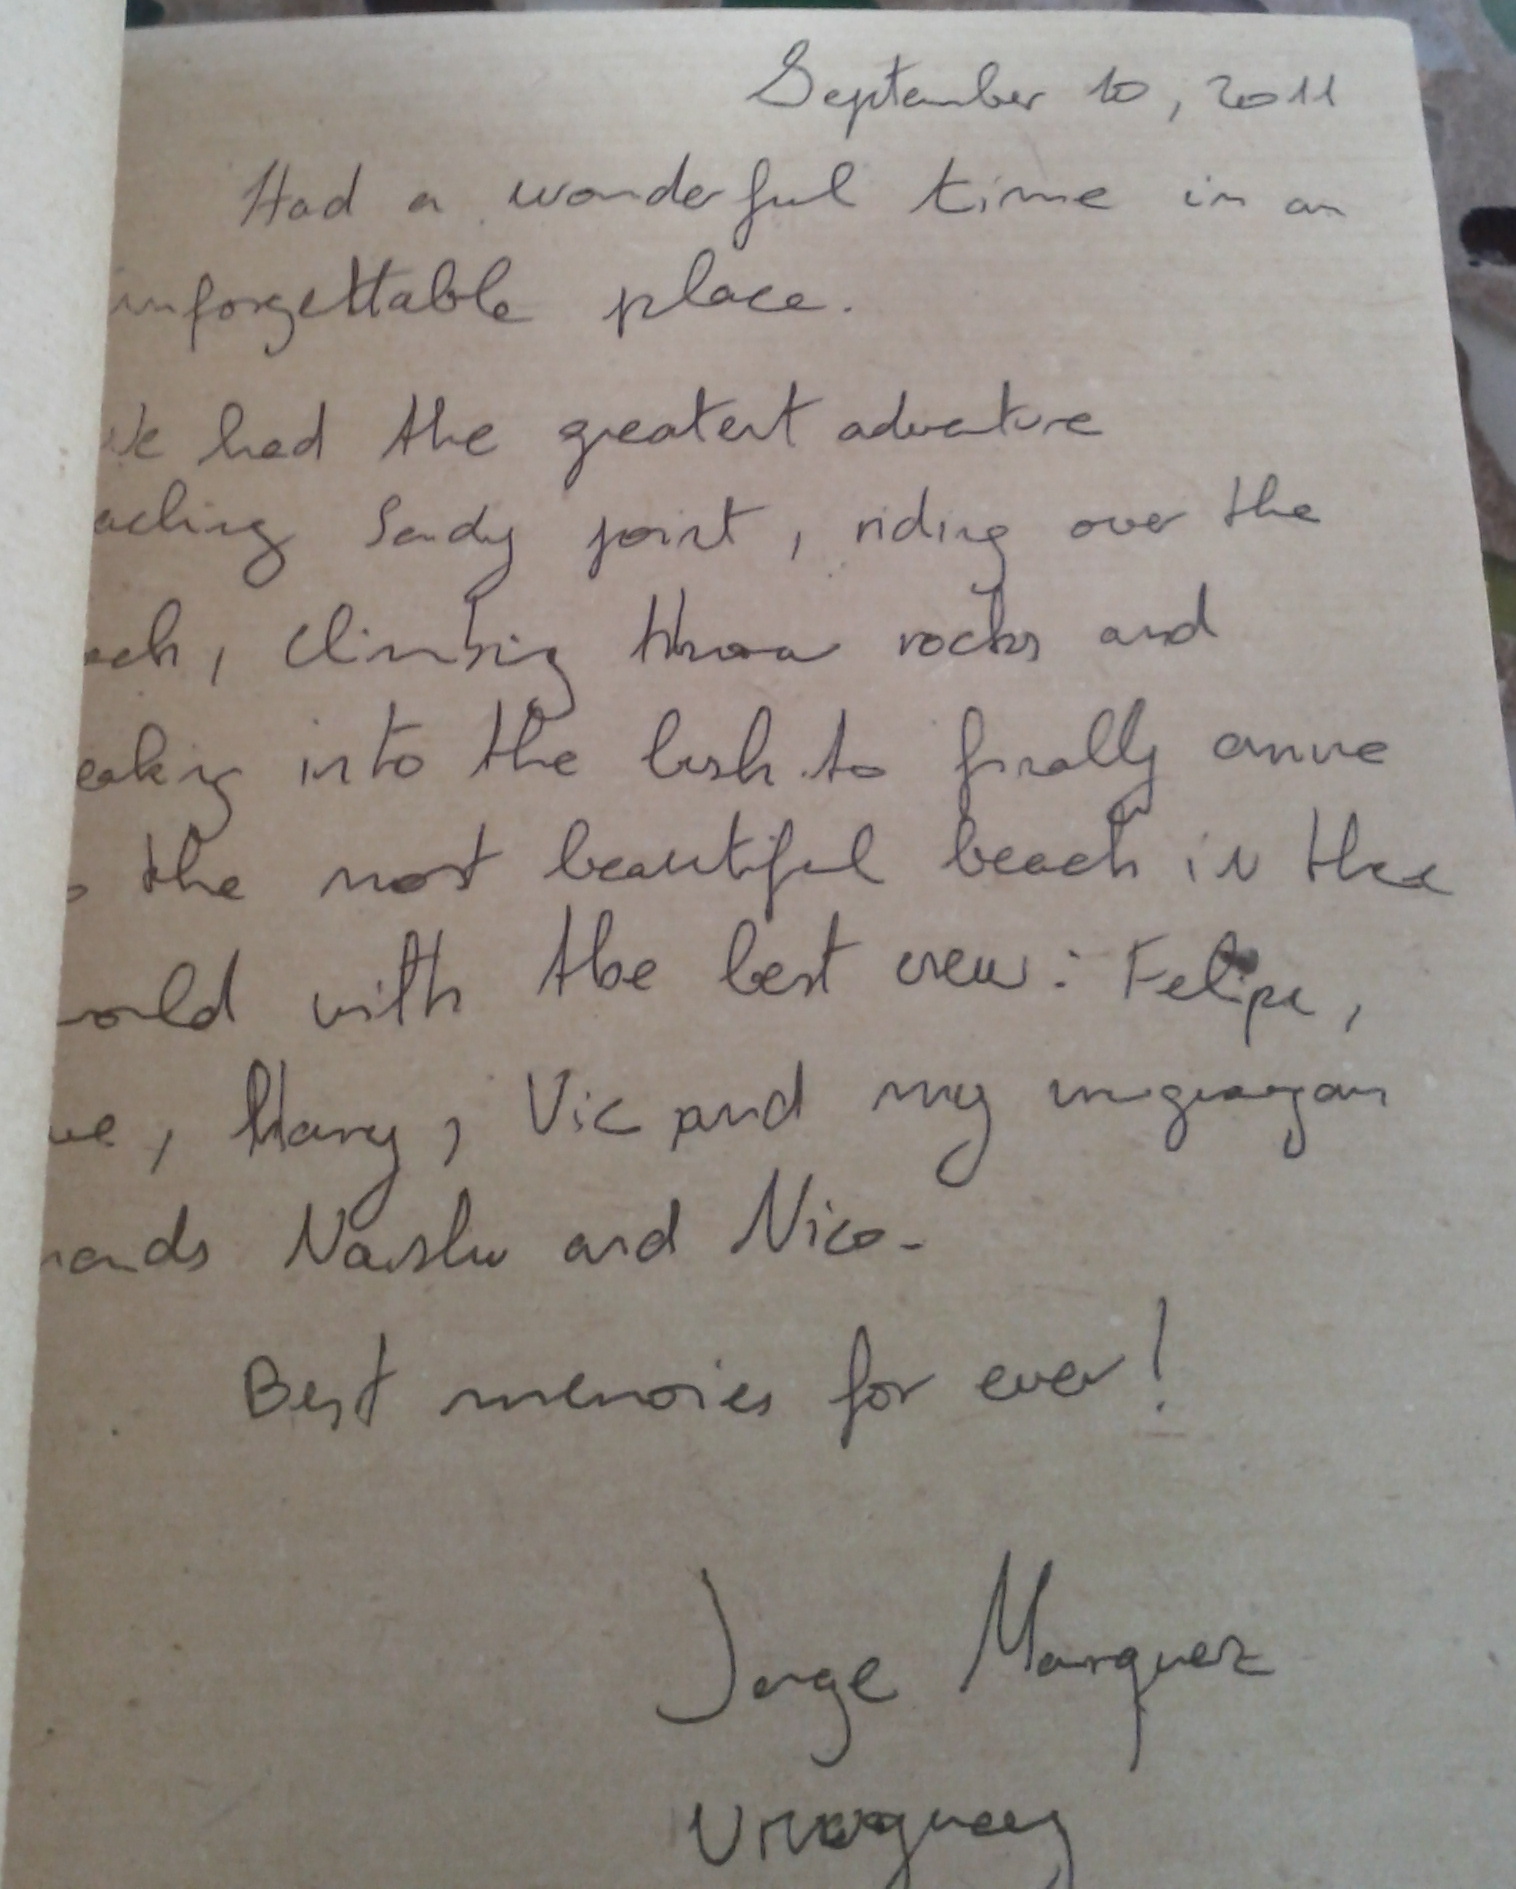 September 10, 2011
Had a wonderful time in an
unforgettable place.
We had the greatest adventure
aching Sandy point, riding over the
ach, climbing throw rocks and
eaking into the bush to finally arrive
o the most beautiful beach in the
world with the best crew: Felipe,
ue, Harry, Vic and my
Nashu and Nico.
Best memories for ever!
Jorge Marquez
Uruguay